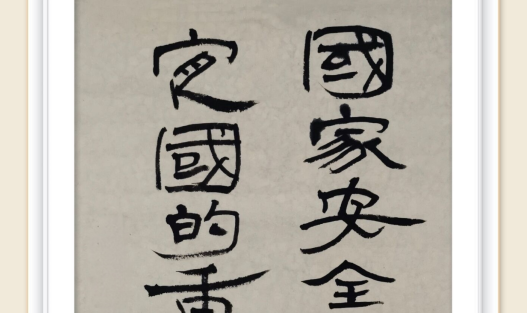 國家安全
定國的重